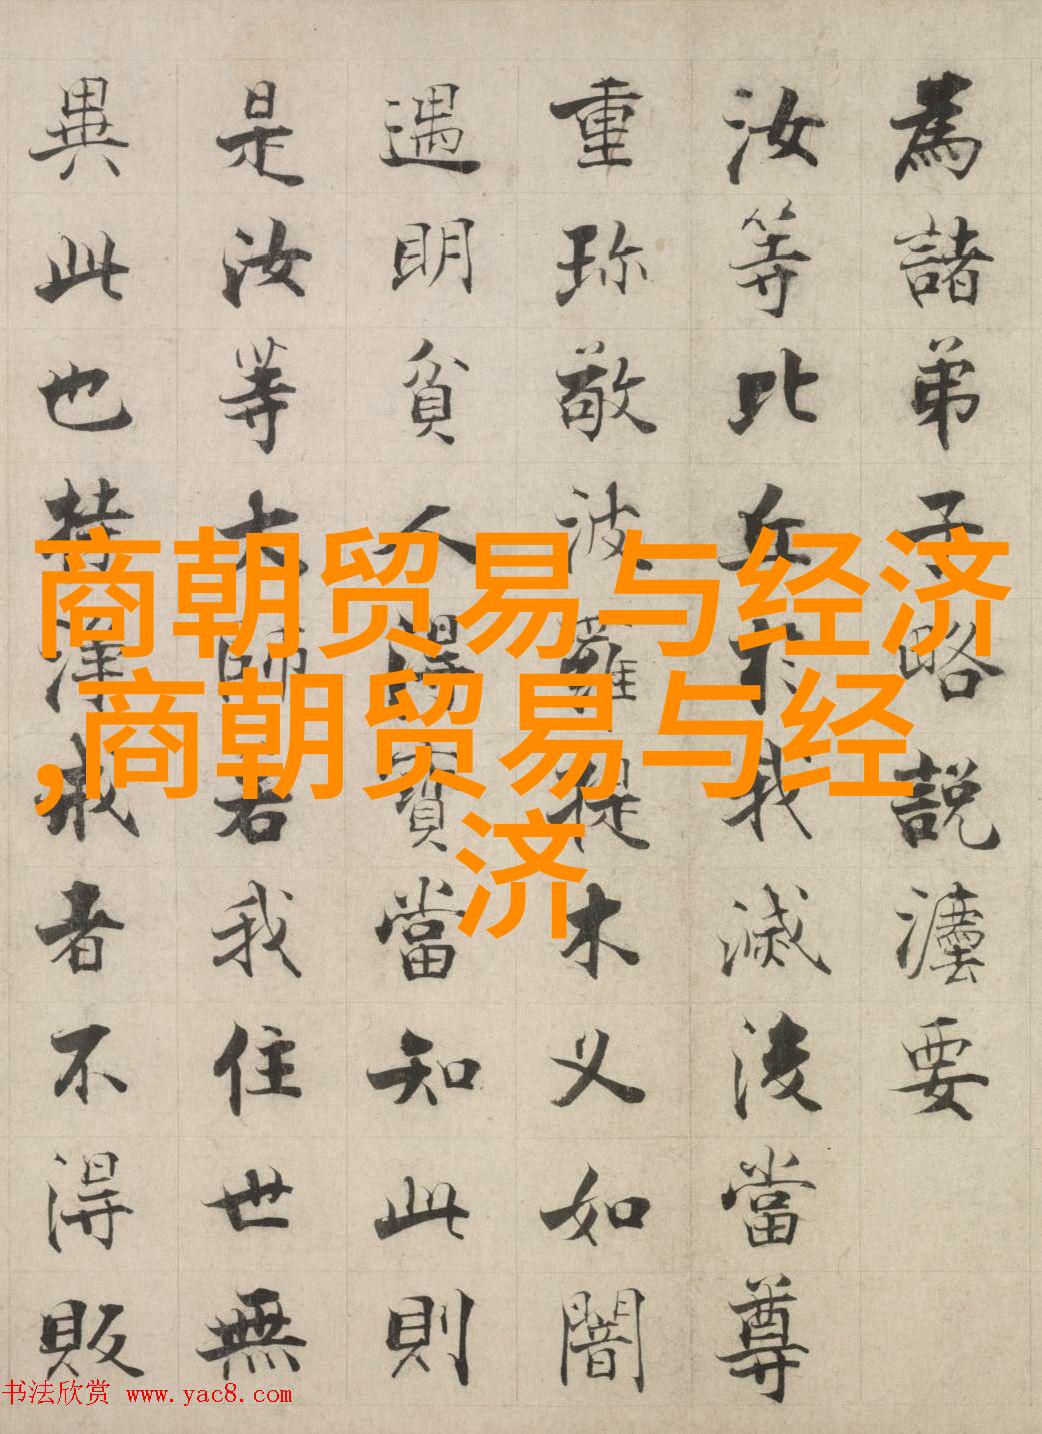 為諸弟子略説灋要
汝等比丘於我滅後當尊
重珎敬波羅提木义如闇
遇明貧人得寳當知此則
是汝等大師若我住世無
異此也持淨戒者不得販
商朝贸易与经济
,商朝贸易与经
济
书法欣赏 www.yac8.com